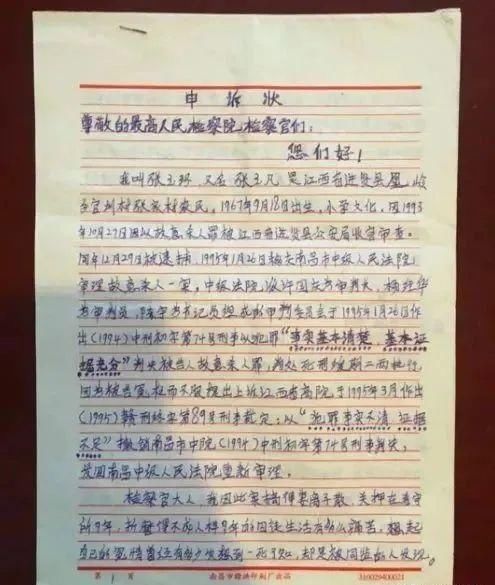 申诉状
尊敬的最高人民检察院检察官们：
您们好！
我叫张玉环 又名 张玉凡 是江西省进贤县凰岭
乡官圳村张家村农民，1967年9月18日出生，小学文化，因1993
年10月27日因以故意杀人罪被江西省进贤县公安局收容审查。
同年12月29日被逮捕，1995年1月26日被南昌市中级人民法院
审理故意杀人一案，中级法院
为审判员， 书记员组成的审判委员会于1995年1月26日作
出（1994）中刑初字第74号刑事以犯罪“事实基本清楚，基本证
据充分”判决被告人故意杀人罪，判处死刑缓期二年执行，
因为被告冤枉而不服提出上诉江西省高院，于1995年3月作出
（1995）赣刑终字第89号刑事裁定：以“犯罪事实不清 证据
不足”撤销南昌市中院（1994）中刑初字第74号刑事判决，
发回南昌中级人民法院重新审理。
检察官大人，我因此案搞得妻离子散，关押在看守
所9年，折磨得不成人样9年的囚徒生活有多么痛苦，想起
自己的冤情曾经有多少次想到一死了知，却是被同监的人发现。
第 1 页 南昌市赣洪印刷厂出品 310029400021